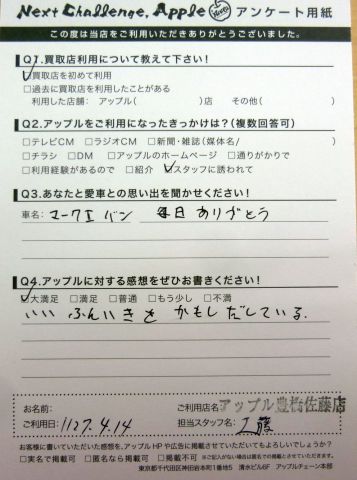 Next Challenge, Apple アンケート用紙
この度は当店をご利用いただきありがとうございました。
Q1.買取店利用について教えて下さい!
☑買取店を初めて利用
□過去に買取店を利用したことがある
利用した店舗: アップル( )店 その他( )
Q2.アップルをご利用になったきっかけは?(複数回答可)
□テレビCM □ラジオCM □新聞・雑誌(媒体名/ )
□チラシ □DM □アップルのホームページ □通りがかりで
□利用経験があるので □紹介 ☑スタッフに誘われて
Q3.あなたと愛車との思い出を聞かせください!
車名: マークII バン 毎日ありがとう
Q4.アップルに対する感想をぜひお書きください!
☑大満足 □満足 □普通 □もう少し □不満
いい ふんいきを かもしだしている.
お名前: ご利用店名: アップル豊橋佐藤店
ご利用日: H27.4.14 担当スタッフ名: 工藤
お客様に書いていただいた感想を、アップルHPや広告に掲載させていただいてもよろしいでしょうか?
□実名で掲載可 □匿名なら掲載可 □掲載不可 ※ご記入がない場合は匿名での掲載とさせていただきます。
東京都千代田区神田岩本町1番地5 清水ビル6F アップルチェーン本部